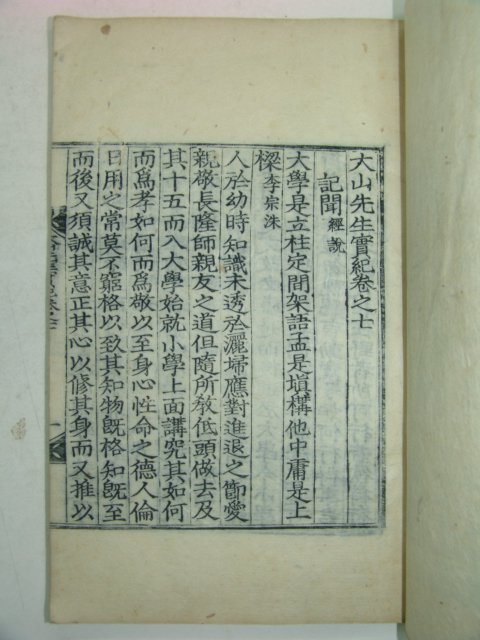 大山先生實紀卷之七
記聞 經說
大學是立柱定間架語孟是塡補他中庸是上
樑 李宗洙
人於幼時知識未透於灑埽應對進退之節愛
親敬長隆師親友之道但隨所敎低頭做去及
其十五而入大學始就小學上面講究其如何
而爲孝如何而爲敬以至身心性命之德人倫
日用之常莫不窮格以致其知物旣格知旣至
而後又須誠其意正其心以修其身而又推以